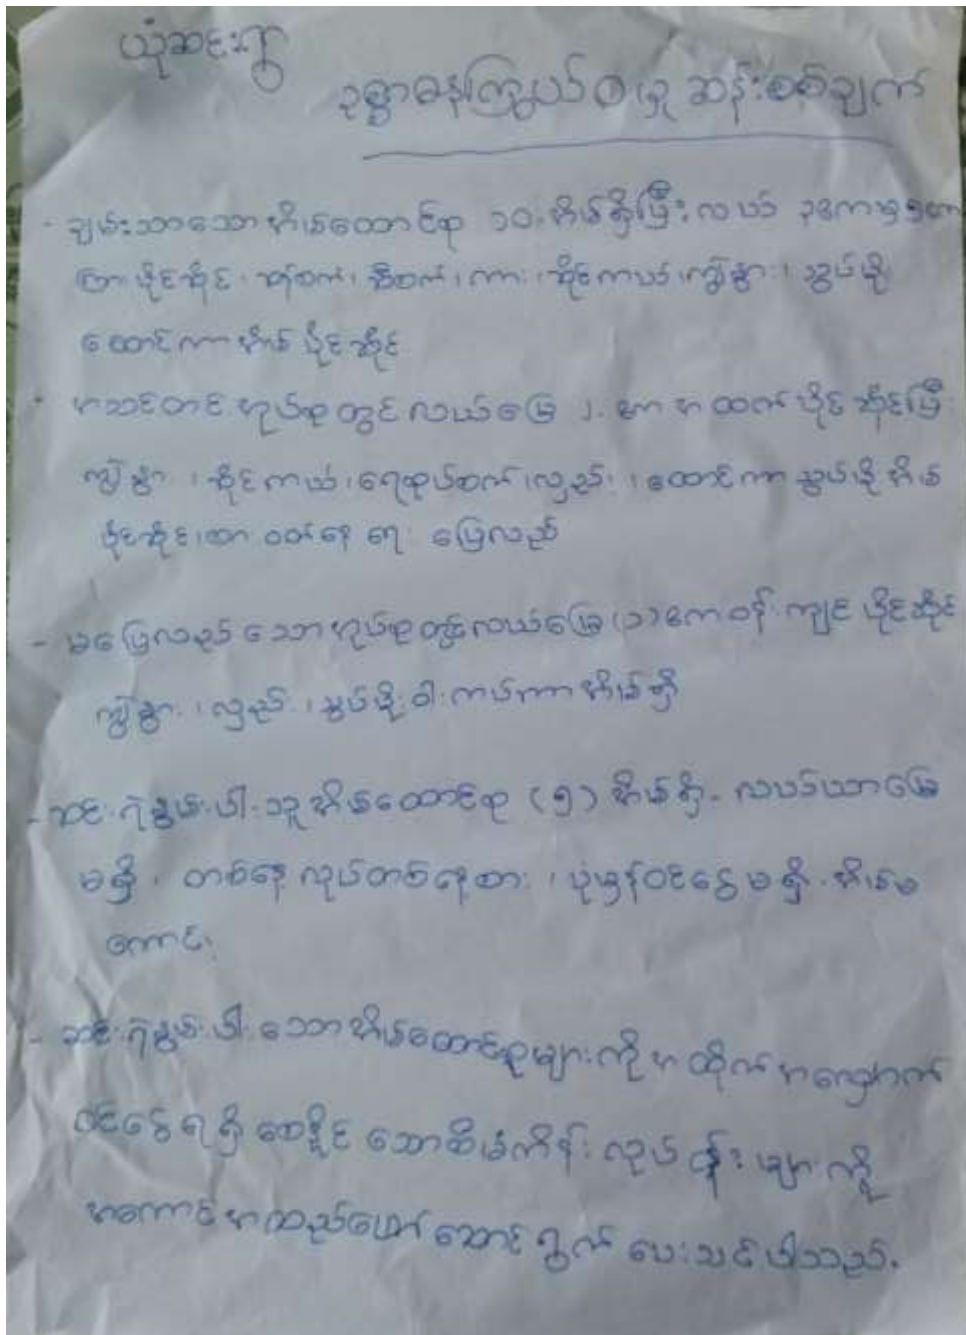 ယုံဆင်းရွာ
ဥစ္စာဓနကြွယ်ဝမှု ဆန်းစစ်ချက်
- ချမ်းသာသောအိမ်ထောင်စု ၁၀ အိမ်ရှိပြီး လယ် ၃ဧကမှ ၅ဧက
ကြား ပိုင်ဆိုင်၊ ဆန်စက်၊ ဆီစက်၊ ကား၊ ဆိုင်ကယ်၊ ကျွဲနွား၊ သွပ်မိုး
ထောင်ကာအိမ် ပိုင်ဆိုင်
- အသင့်တင့် အုပ်စုတွင် လယ်မြေ ၂ ဧက အထက် ပိုင်ဆိုင်ပြီး
ကျွဲနွား၊ ဆိုင်ကယ်၊ ရေစုပ်စက်၊ လှည်း၊ ထောင်ကာ သွပ်မိုးအိမ်
ပိုင်ဆိုင်၊ စား ဝတ် နေ ရေး ပြေလည်
- မပြေလည်သောအုပ်စုတွင် လယ်မြေ (၁) ဧက ဝန်းကျင် ပိုင်ဆိုင်
ကျွဲနွား၊ လှည်း၊ သွပ်မိုး ဝါးကပ်ကာအိမ်ရှိ
- ဆင်းရဲနွမ်းပါးသူ အိမ်ထောင်စု (၅) အိမ်ရှိ၊ လယ်ယာမြေ
မရှိ၊ တစ်နေ့လုပ်တစ်နေ့စား၊ ပုံမှန်ဝင်ငွေမရှိ၊ အိမ်မ
ကောင်း၊
- ဆင်းရဲနွမ်းပါးသောအိမ်ထောင်စုများကို အထိုက်အလျောက်
ဝင်ငွေရရှိစေနိုင်သောစီမံကိန်း လုပ်ငန်းများကို
အကောင်အထည်ဖော် ဆောင်ရွက်ပေးသင့်ပါသည်။